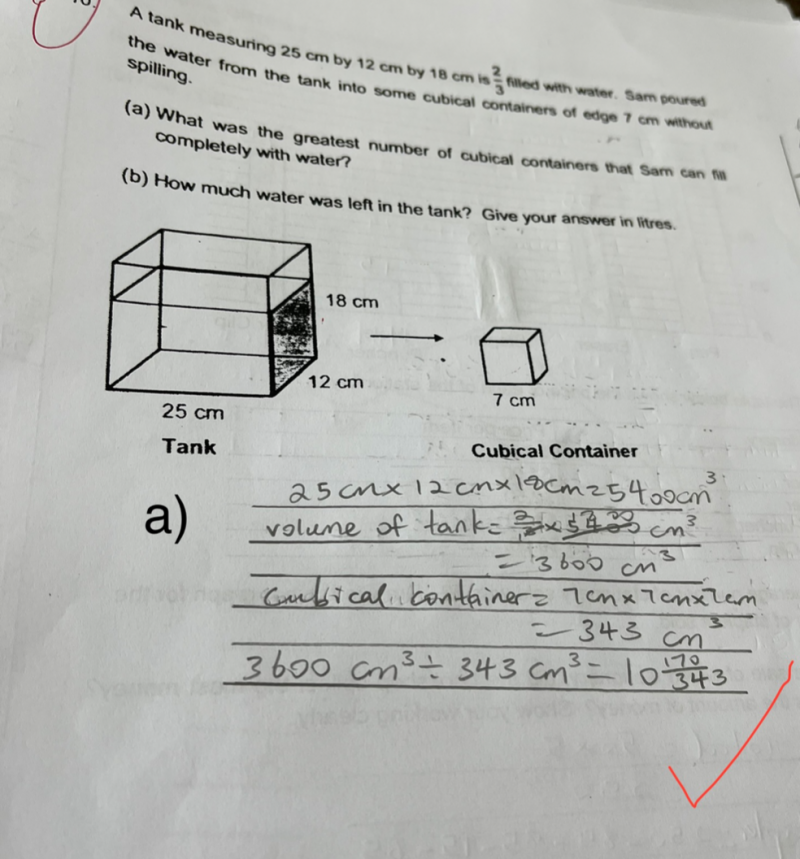 A tank measuring 25 cm by 12 cm by 18 cm is 2/3 filled with water. Sam poured
the water from the tank into some cubical containers of edge 7 cm without
spilling.
(a) What was the greatest number of cubical containers that Sam can fill
completely with water?
(b) How much water was left in the tank? Give your answer in litres.
18 cm
12 cm
25 cm
7 cm
Tank
Cubical Container
a)
25cm x 12cm x 18cm = 5400cm³
volume of tank = cm³
= 3600 cm³
cubical container = 7cm x 7cm x 7cm
= 343 cm³
3600 cm³ ÷ 343 cm³ = 10 170/343